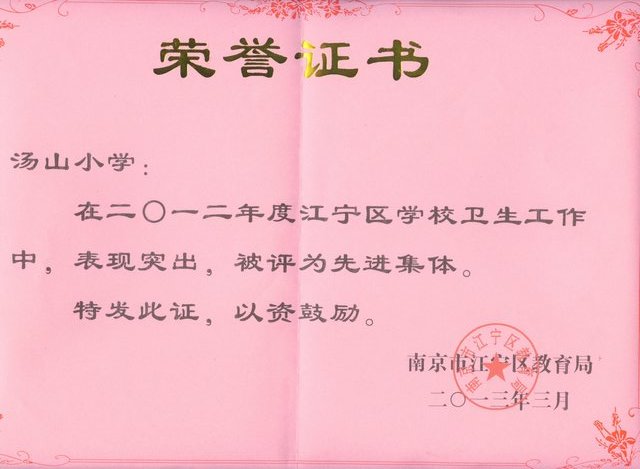 荣誉证书
汤山小学：
在二〇一二年度江宁区学校卫生工作
中，表现突出，被评为先进集体。
特发此证，以资鼓励。
南京市江宁区教育局
二〇一三年三月
南京市江宁区教育局